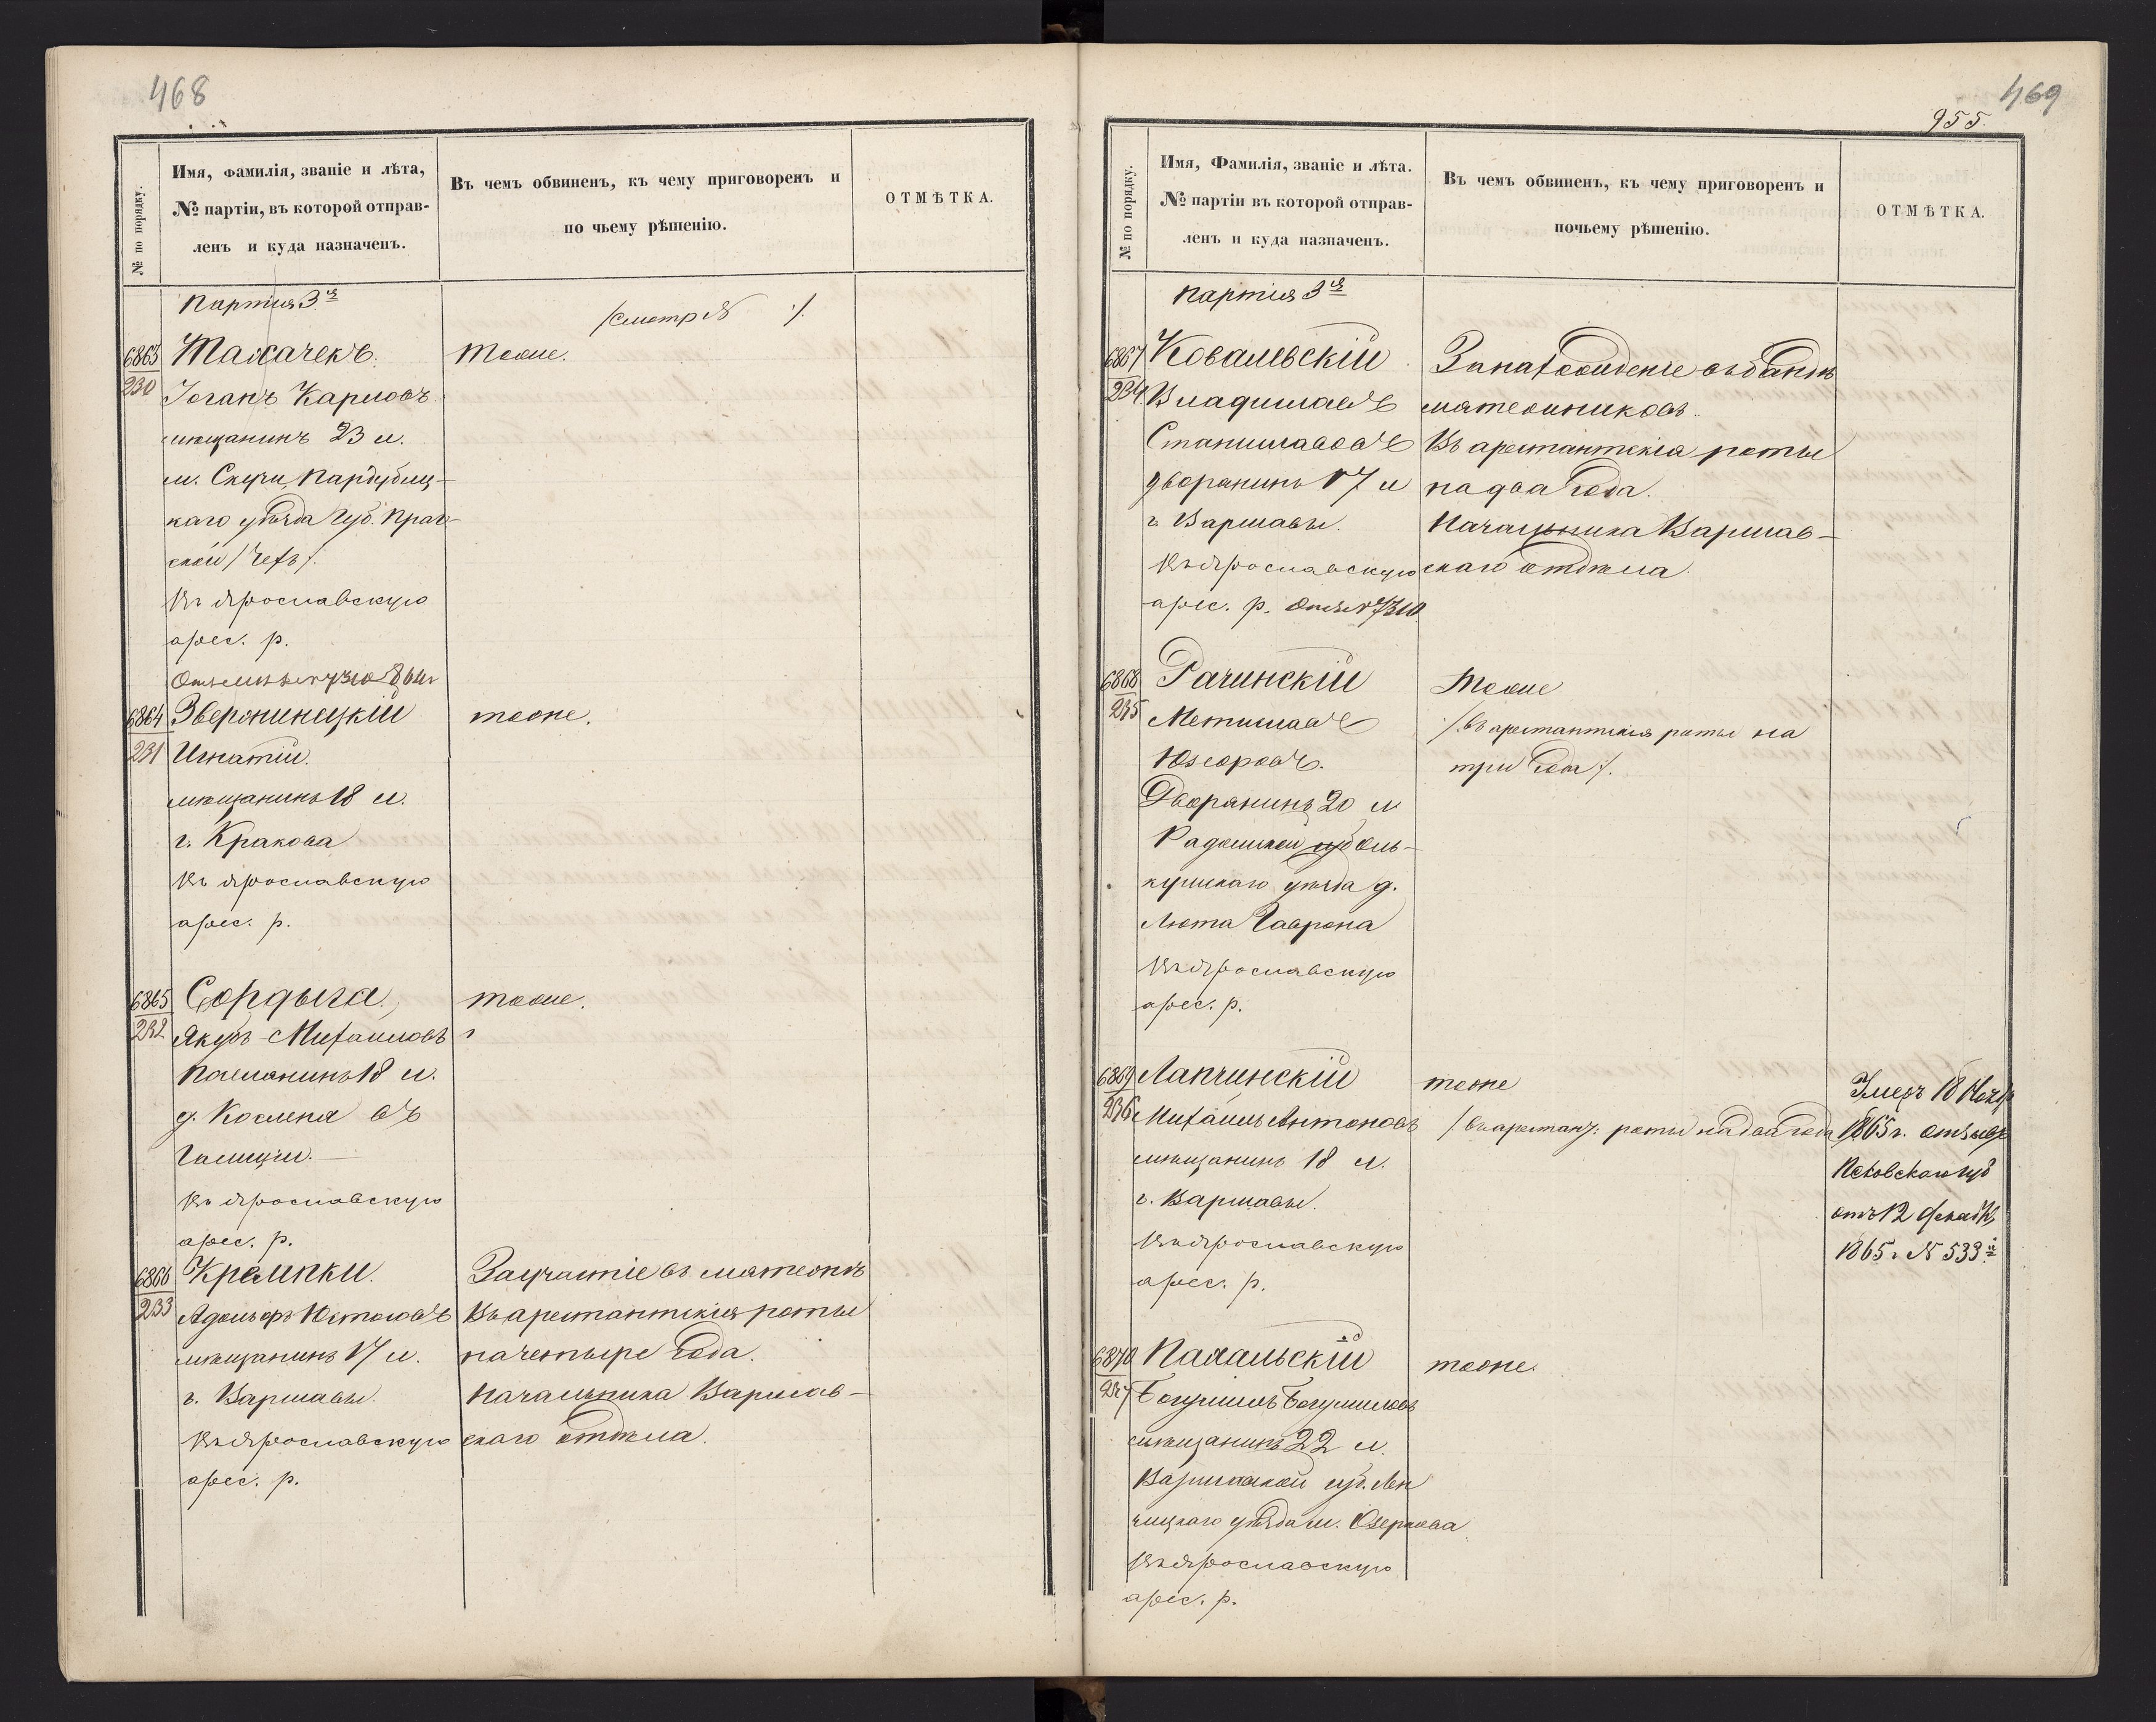 468
№ по порядку.
Имя, фамилія, званіе и лѣта,
№ партіи, въ которой отправ-
ленъ и куда назначенъ.
Въ чемъ обвиненъ, къ чему приговоренъ и
по чьему рѣшенію.
ОТМѢТКА.
Партія 3я
/смотр №  /.
6863
230
Іоганъ Карловъ
мѣщанинъ 23 л.
каго уѣзда Губ. Праж-
ской /Чехъ/.
Въ Ярославскую
арес. р.
Тоже.
6864
231
Игнатій
мѣщанинъ 18 л.
г. Кракова
Въ Ярославскую
арес. р.
тоже.
6865
232
Сордыга
Якубъ Михаиловъ
18 л.
въ
Галиціи.
Въ Ярославскую
арес. р.
тоже.
6866
233
Крампки.
Адольфъ
мѣщанинъ 17 л.
г. Варшавы
Въ Ярославскую
арес. р.
За участіе въ мятежѣ
Въ арестантскія роты
на четыре года.
Начальника Варшав-
скаго отдѣла.
469
955.
№ по порядку.
Имя, Фамилія, званіе и лѣта.
№ партіи въ которой отправ-
ленъ и куда назначенъ.
Въ чемъ обвиненъ, къ чему приговоренъ и
почьему рѣшенію.
ОТМѢТКА.
Партія 3я
6867
234
Ковальскій
Владиславъ
Станиславовъ
дворянинъ 17 л
г. Варшавы.
Въ Ярославскую
арес. р.
За нахожденіе въ бандѣ
мятежниковъ.
Въ арестантскія роты
на два года.
Начальника Варшав-
скаго отдѣла.
6868
235
Рачинскій
Мечиславъ
Юзефовъ.
Дворянинъ 20 л
Радомской губ Оль-
кушскаго уѣзда д.
Люта Гаврона
Въ Ярославскую
арес. р.
Тоже
/въ арестантскія роты на
три года/.
6869
236
Лапчинскій
Михаилъ Антоновъ
мѣщанинъ 18 л.
г. Варшавы.
Въ Ярославскую
арес. р.
тоже
/въ арестант. роты на два года
Умеръ 18 Нояб
1865 г. отзывъ
Псковскаго губ
отъ 12 Декабр
1865 г № 533й
6870
237
Богумилъ Богумиловъ
мѣщанинъ 22 л.
Варшавской губ. Лен
чицкаго уѣзда м. Озеркова
Въ Ярославскую
арес. р.
тоже.